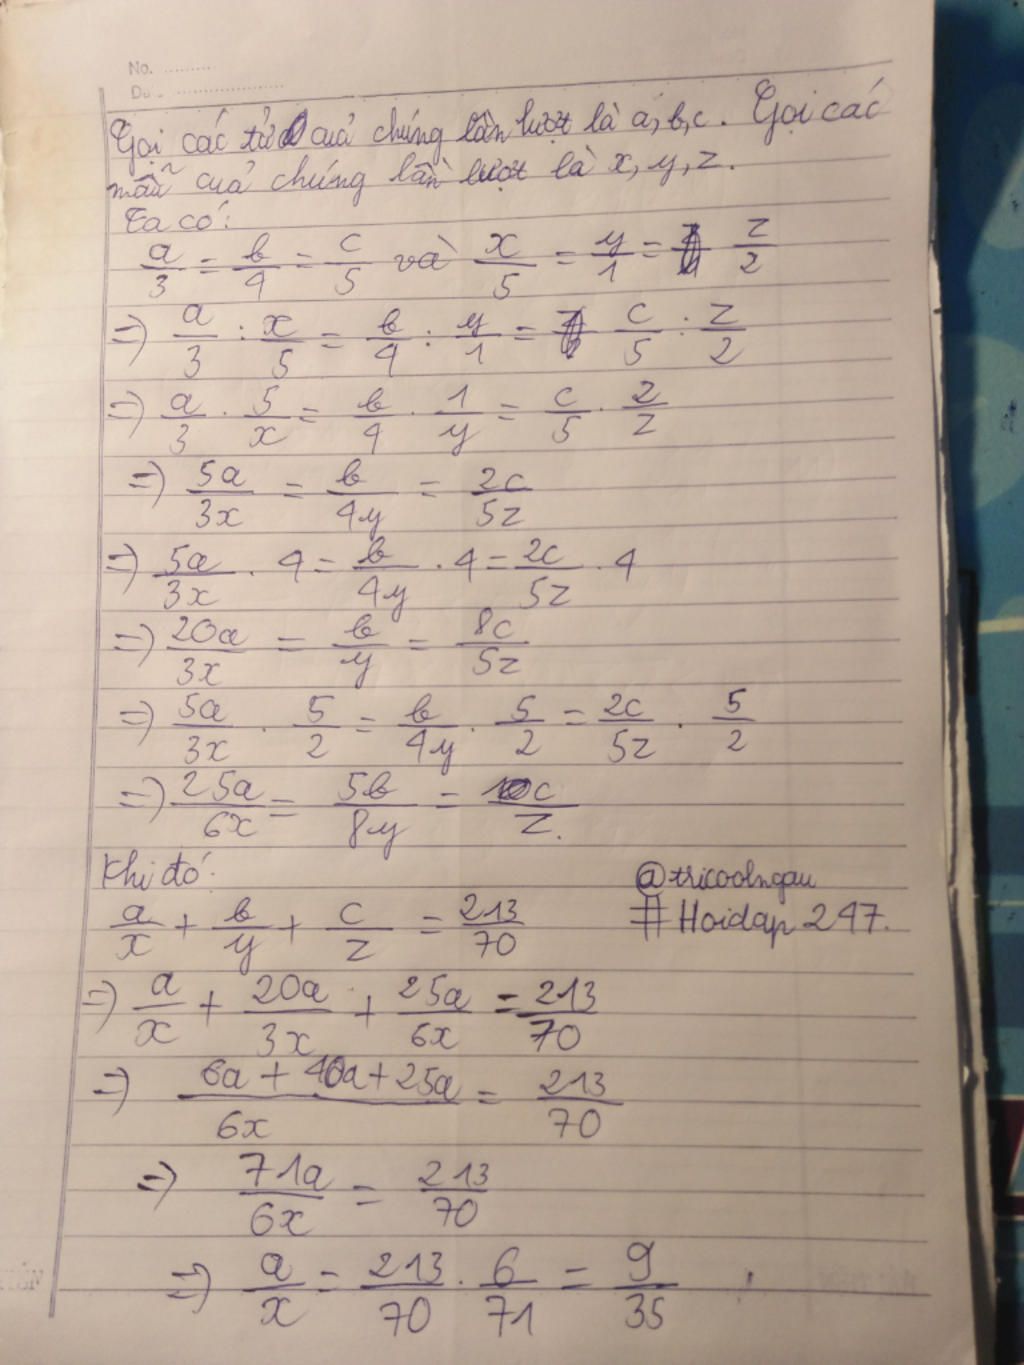 No. ..........
Gọi các tử của chúng lần lượt là a, b, c. Gọi các
mẫu của chúng lần lượt là x, y, z.
Ta có:
a/3 = b/4 = c/5 và x/5 = y/1 = z/2
=> a/3 : x/5 = b/4 : y/1 = c/5 : z/2
=> a/3 . 5/x = b/4 . 1/y = c/5 . 2/z
=> 5a/3x = b/4y = 2c/5z
=> 5a/3x . 4 = b/4y . 4 = 2c/5z . 4
=> 20a/3x = b/y = 8c/5z
=> 5a/3x . 5/2 = b/4y . 5/2 = 2c/5z . 5/2
=> 25a/6x = 5b/8y = c/z.
Khi đó:
@tricoolngau
a/x + b/y + c/z = 213/70
# Hoidap 247.
=> a/x + 20a/3x + 25a/6x = 213/70
=> 6a + 40a + 25a/6x = 213/70
=> 71a/6x = 213/70
=> a/x = 213/70 . 6/71 = 9/35